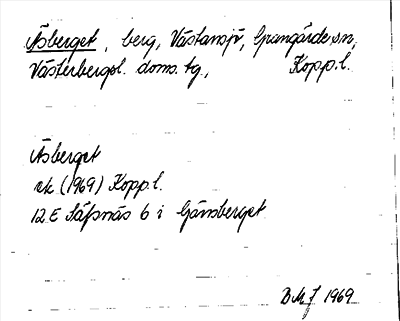 Åsberget, berg, Västansjö, Grangärde sn,
Västerbergsl. doms. tg, Kopp. l.
Åsberget
ek (1969) Kopp. l.
12 E Säfsnäs 6 i Gänsberget
BMJ 1969